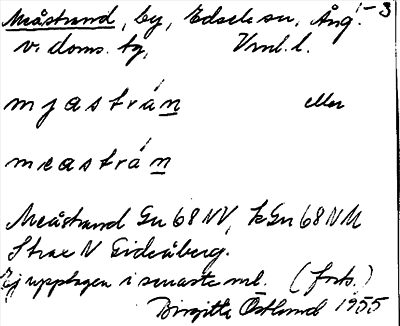 Meåstrand, by, Edsele sn, Ång. 1-3
v. doms. tg, Vnrl. l.
mjastrán eller
meastrán
Meåstrand Gu 68 NV, kGu 68 NM
Strax N Gideåberg.
Ej upptagen i senaste ml. (forts.)
Birgitta Östlund 1955